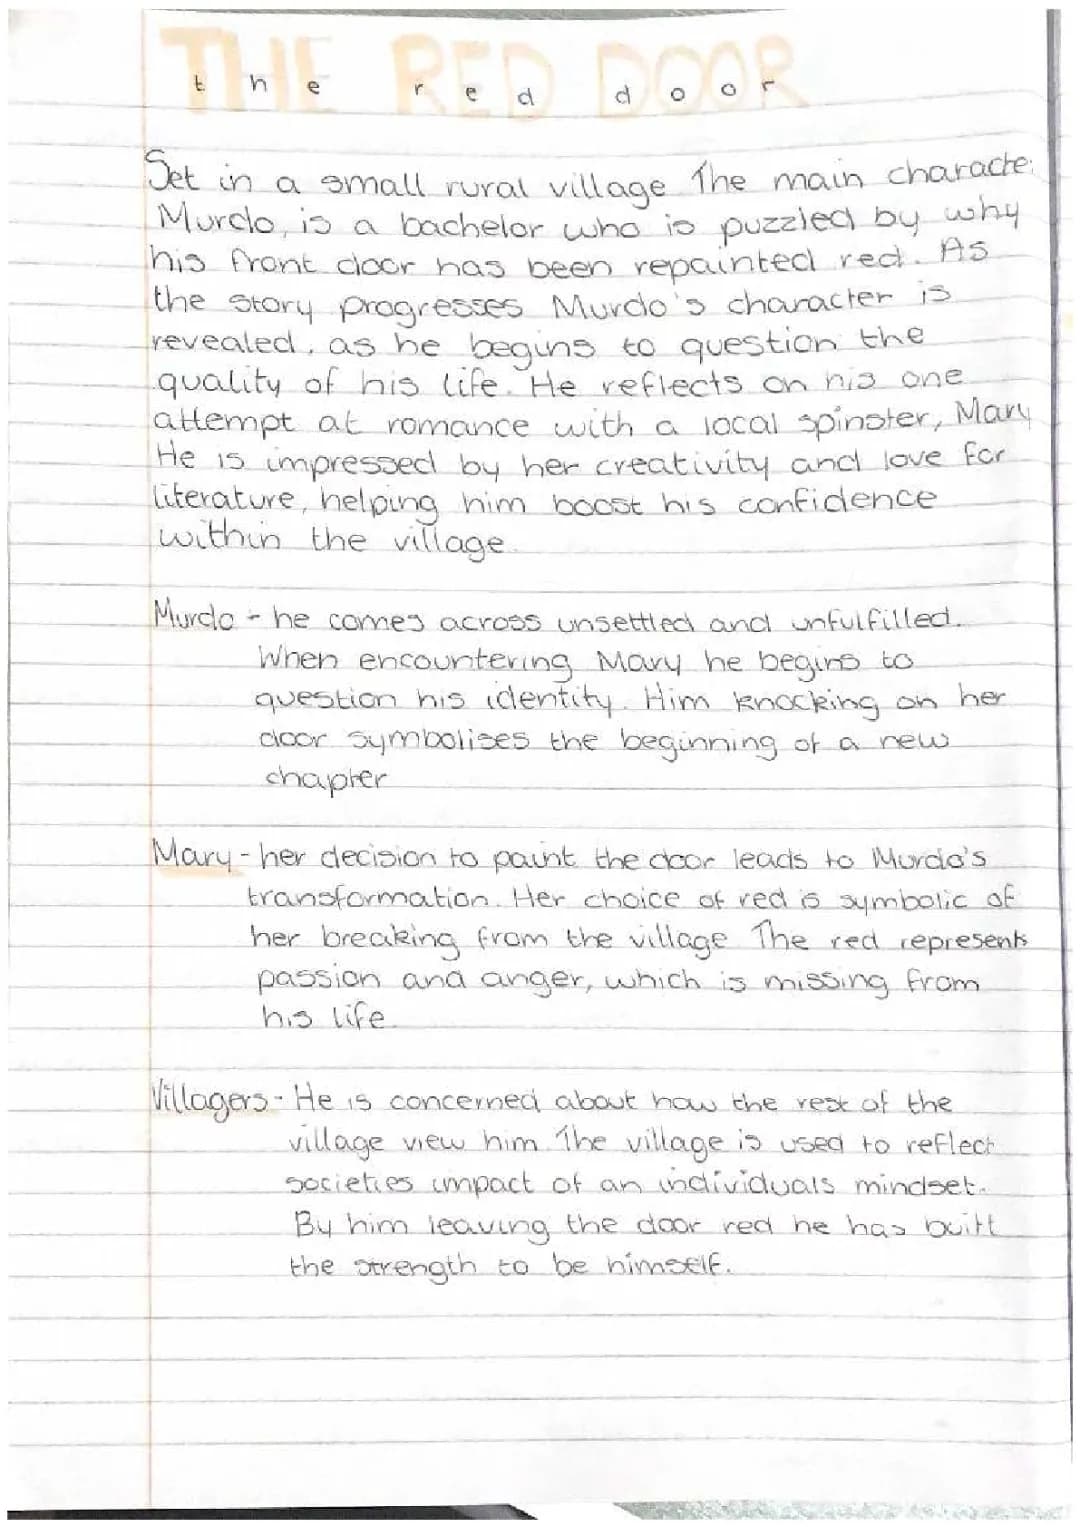 THE RED DOOR
the red door
Set in a small rural village The main characte
Murdo, is a bachelor who is puzzled by why
his front door has been repainted red. As
the story progresses Murdo's character is
revealed, as he begins to question the
quality of his life. He reflects on his one
attempt at romance with a local spinster, Mary
He is impressed by her creativity and love for
literature, helping him boost his confidence
within the village.
Murdo - he comes across unsettled and unfulfilled.
When encountering Mary he begins to
question his identity. Him knocking on her
door symbolises the beginning of a new
chapter
Mary - her decision to paint the door leads to Murdo's
transformation. Her choice of red is symbolic of
her breaking from the village The red represents
passion and anger, which is missing from
his life.
Villagers - He is concerned about how the rest of the
village view him. The village is used to reflect
societies impact of an individuals mindset.
By him leaving the door red he has built
the strength to be himself.